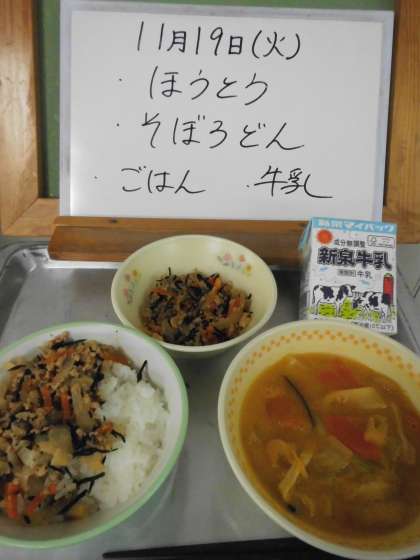 11月19日(火)
・ほうとう
・そぼろどん
・ごはん ・牛乳
成分無調整
新泉牛乳
牛乳